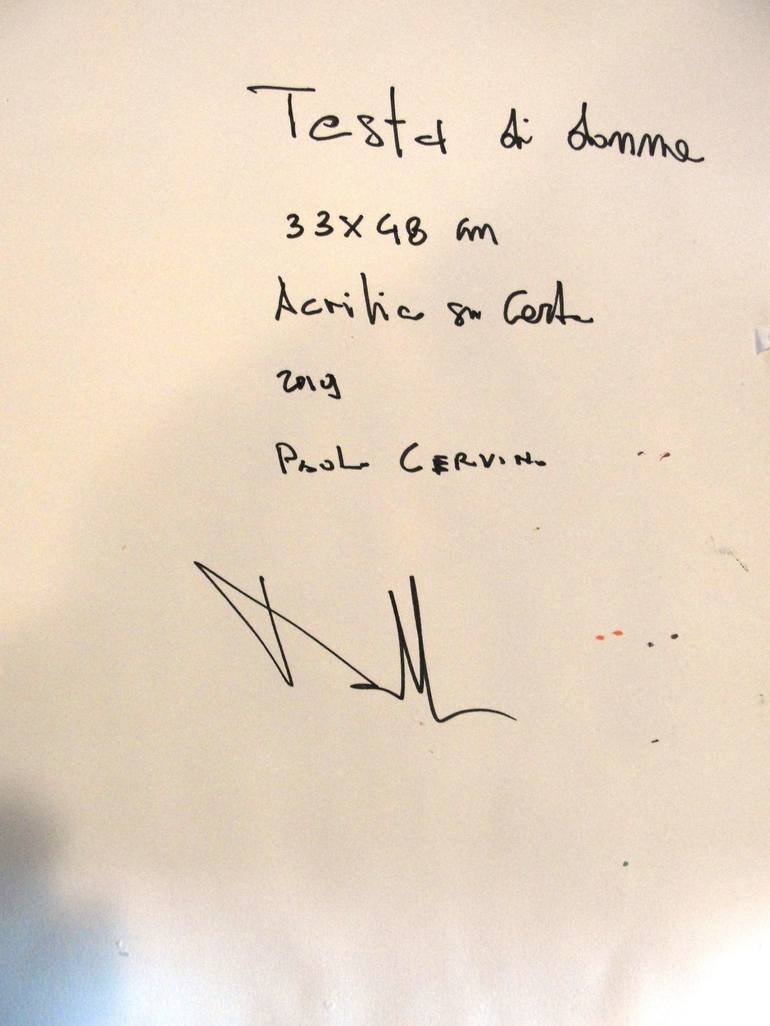 Testa di donna
33x48 cm
Acrilico su Carta
2019
Paolo CERVINO